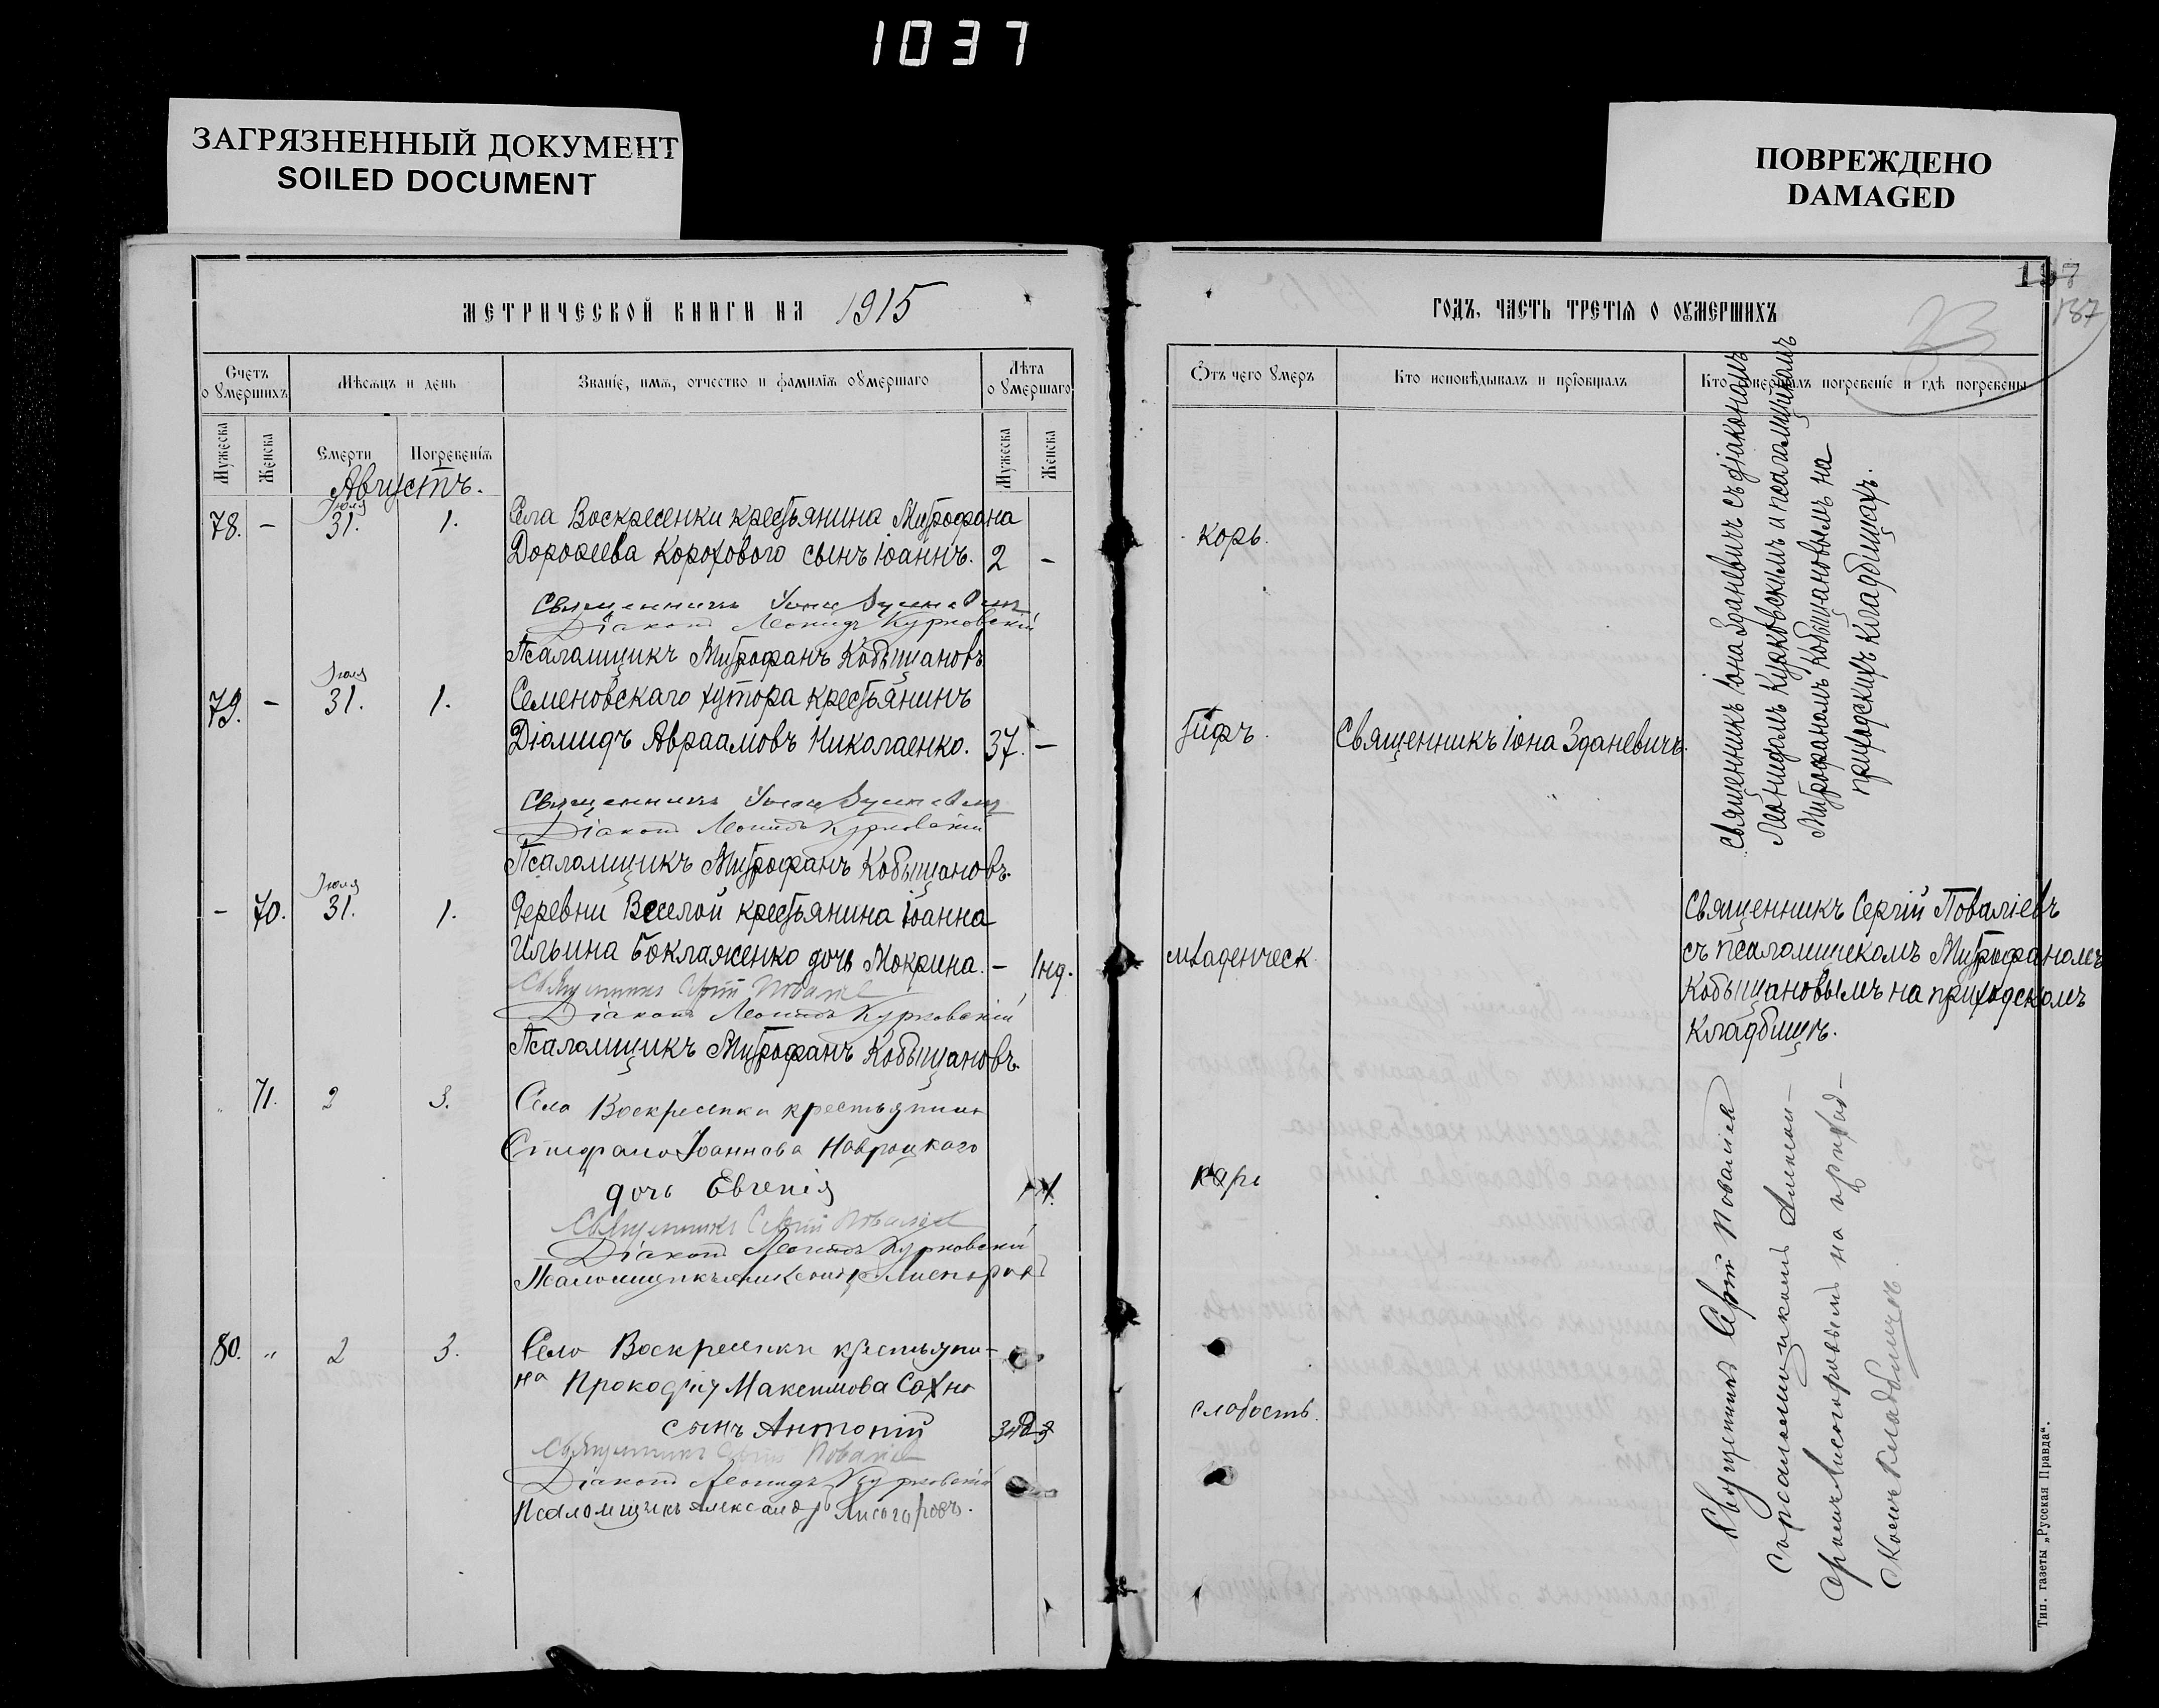 1037
ЗАГРЯЗНЕННЫЙ ДОКУМЕНТ
SOILED DOCUMENT
ПОВРЕЖДЕНО
DAMAGED
МЕТРИЧЕСКОЙ КНИГИ НА 1915
Счетъ оумершихъ
Мѣсяцъ и день
Званіе, имя, отчество и фамилія оумершаго
Лѣта оумершаго
Мужеска
Женска
Смерти
Погребенія
Мужеска
Женска
Августъ.
Іюля
78. - 31. 1. Села Воскресенки крестьянина Митрофана
Дороѳеева Корохового сынъ Іоаннъ. 2 -
Священникъ Іона Зданевичъ
Діаконъ Леонидъ Курковскій
Псаломщикъ Митрофанъ Кобыщановъ
Іюля
79. - 31. 1. Семеновскаго хутора крестьянинъ
Діомидъ Авраамовъ Николаенко. 37. -
Священникъ Іона Зданевичъ
Діаконъ Леонидъ Курковскій
Псаломщикъ Митрофанъ Кобыщановъ.
Іюля
- 70. 31. 1. Деревни Веселой крестьянина Іоанна
Ильина Боклаженко дочь Мокрина. - 1 нд.
Священникъ Сергій Поваліевъ
Діаконъ Леонидъ Курковскій
Псаломщикъ Митрофанъ Кобыщановъ.
" 71. 2 3. Села Воскресенки крестьянина
Стефана Іоаннова Навроцкаго
дочь Евгенія
Священникъ Сергій Поваліевъ
Діаконъ Леонидъ Курковскій
Псаломщикъ Александръ Лисогоровъ
80. " 2 3. Села Воскресенки крестьяни-
на Прокофія Максимова Сахно
сынъ Антоній
Священникъ Сергій Поваліевъ
Діаконъ Леонидъ Курковскій
Псаломщикъ Александръ Лисогоровъ.
187
23
ГОДЪ, ЧАСТЬ ТРЕТІЯ О ОУМЕРШИХЪ
Отъ чего умеръ
Кто исповѣдывалъ и пріобщалъ
Кто совершалъ погребеніе и гдѣ погребены
корь.
Тифъ. Священникъ Іона Зданевичъ.
младенческ
корь
слабость.
Священникъ Іона Зданевичъ съ діакономъ
Леонидомъ Курковскимъ и псаломщикомъ
Митрофаномъ Кобыщановымъ на
приходскихъ кладбищахъ.
Священникъ Сергій Поваліевъ
съ псаломщикомъ Митрофаномъ
Кобыщановымъ на приходскомъ
кладбищѣ.
Священникъ Сергій Поваліевъ
съ псаломщикомъ Алексан-
дромъ Лисогоровымъ на приход-
скомъ кладбищѣ.
Тип. газеты „Русская Правда".